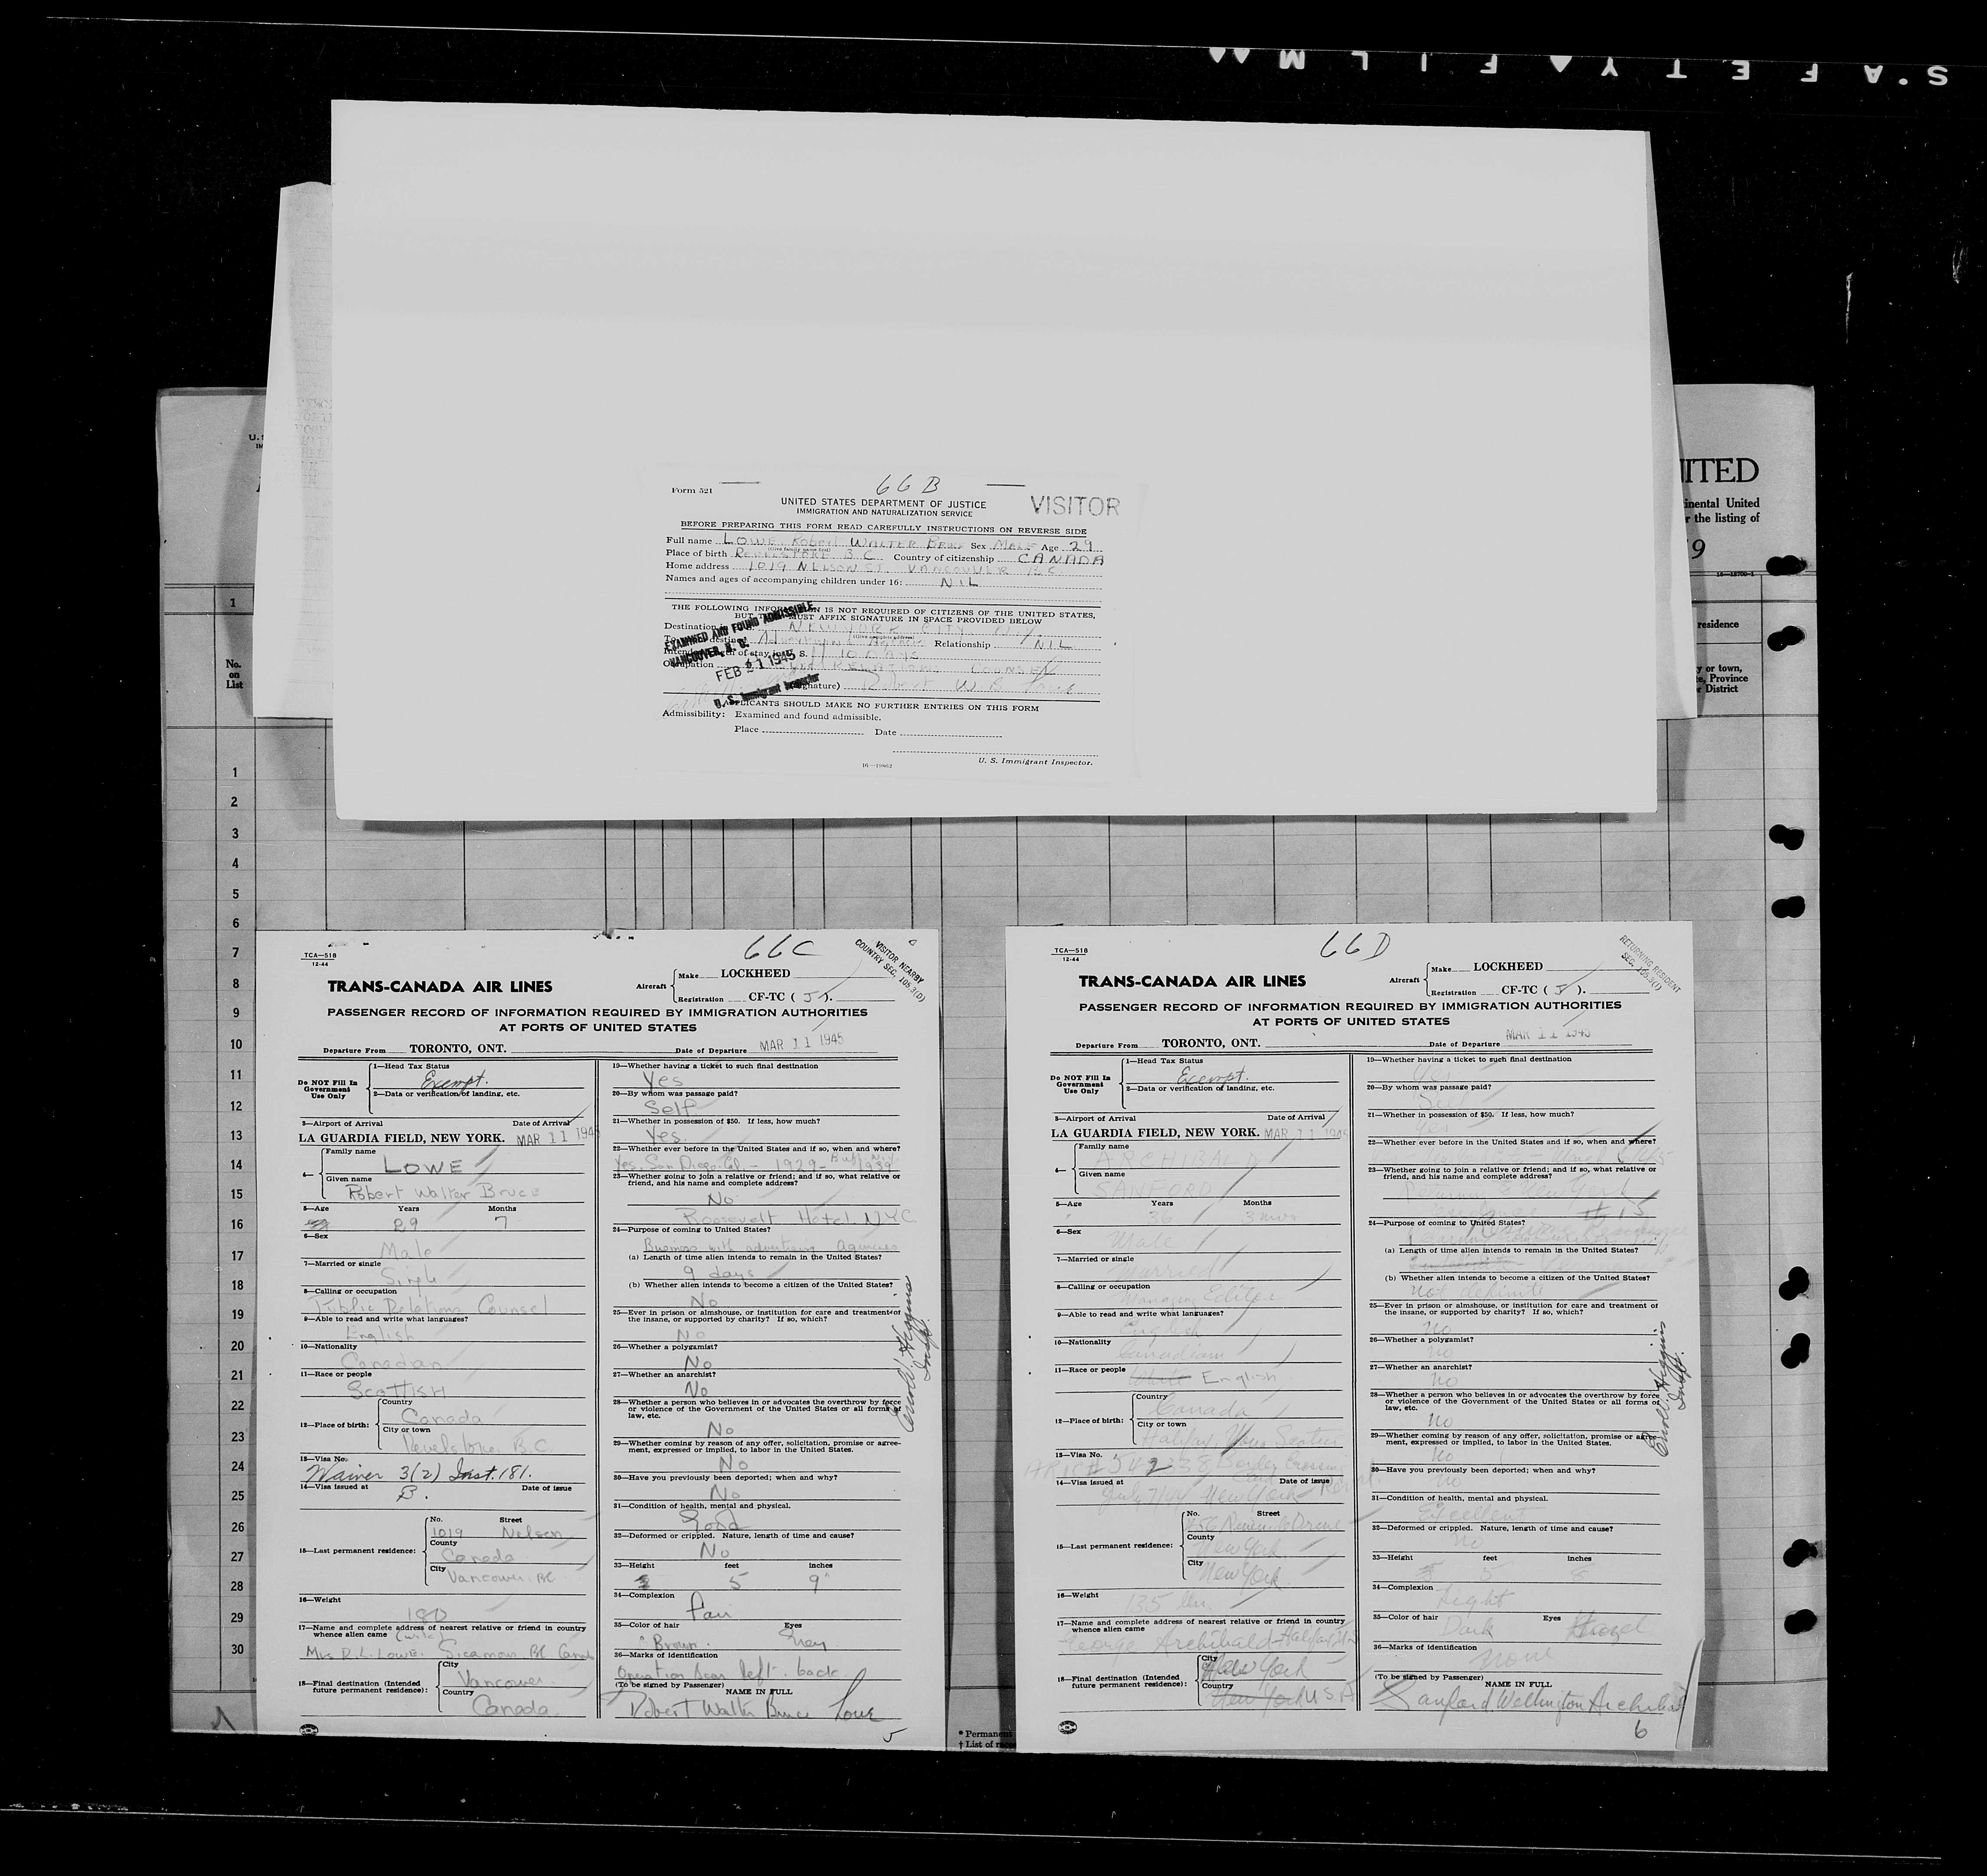 S.A F E T Y ♥ F I L M ♥♥
66 B
Form 521
VISITOR
UNITED STATES DEPARTMENT OF JUSTICE
IMMIGRATION AND NATURALIZATION SERVICE
BEFORE PREPARING THIS FORM READ CAREFULLY INSTRUCTIONS ON REVERSE SIDE
Full name LOWE Robert WALTER BRUCE Sex MALE Age 29
(Give family name first)
Place of birth REVELSTOKE B C Country of citizenship CANADA
Home address 1019 NELSON ST. VANCOUVER BC
Names and ages of accompanying children under 16: NIL
THE FOLLOWING INFORMATION IS NOT REQUIRED OF CITIZENS OF THE UNITED STATES,
BUT THEY MUST AFFIX SIGNATURE IN SPACE PROVIDED BELOW
Destination in NEW YORK CITY N.Y.
(Give complete address)
Relationship NIL
of stay in U. S. 10 DAYS
Occupation RELATIONS COUNSEL
(Signature) Robert W B Lowe
EXAMINED AND FOUND ADMISSIBLE
VANCOUVER, B. C.
FEB 21 1945
U. S. Immigrant Inspector
APPLICANTS SHOULD MAKE NO FURTHER ENTRIES ON THIS FORM
Admissibility: Examined and found admissible.
Place Date
U. S. Immigrant Inspector.
16—19862
ITED
inental United
r the listing of
9
residence
y or town,
te, Province
r District
No.
on
List
1
1
2
3
4
5
6
7
8
9
10
11
12
13
14
15
16
17
18
19
20
21
22
23
24
25
26
27
28
29
30
66C
TCA—518
12-44
VISITOR NEARBY
COUNTRY SEC. 105.3(D)
TRANS-CANADA AIR LINES
Aircraft Make LOCKHEED
Registration CF-TC ( J ).
PASSENGER RECORD OF INFORMATION REQUIRED BY IMMIGRATION AUTHORITIES
AT PORTS OF UNITED STATES
Departure From TORONTO, ONT. Date of Departure MAR 11 1945
Do NOT Fill In
Government
Use Only
1—Head Tax Status
Exempt.
2—Data or verification of landing, etc.
3—Airport of Arrival Date of Arrival
LA GUARDIA FIELD, NEW YORK. MAR 11 194
4—
Family name
LOWE
Given name
Robert Walter Bruce
5—Age Years Months
29 7
6—Sex
Male
7—Married or single
Single
8—Calling or occupation
Public Relations Counsel
9—Able to read and write what languages?
English
10—Nationality
Canadian
11—Race or people
SCOTTISH
12—Place of birth:
Country
Canada
City or town
Revelstoke B.C.
13—Visa No.
Waiver 3(2) Inst. 181.
14—Visa issued at Date of issue
B.
15—Last permanent residence:
No. Street
1019 Nelson
County
Canada
City
Vancouver. BC
16—Weight
180
17—Name and complete address of nearest relative or friend in country
whence alien came
Mrs R.L. Lowe. Sicamous BC
18—Final destination (Intended
future permanent residence):
City
Vancouver
Country
Canada
19—Whether having a ticket to such final destination
Yes
20—By whom was passage paid?
Self
21—Whether in possession of $50. If less, how much?
Yes.
22—Whether ever before in the United States and if so, when and where?
Yes. San Diego Cal. – 1929 – 1939
23—Whether going to join a relative or friend; and if so, what relative or
friend, and his name and complete address?
No
Roosevelt Hotel NYC
24—Purpose of coming to United States?
Business with advertising Agencies
(a) Length of time alien intends to remain in the United States?
9 days
(b) Whether alien intends to become a citizen of the United States?
No
25—Ever in prison or almshouse, or institution for care and treatment of
the insane, or supported by charity? If so, which?
No
26—Whether a polygamist?
No
27—Whether an anarchist?
No
28—Whether a person who believes in or advocates the overthrow by force
or violence of the Government of the United States or all forms of
law, etc.
No
29—Whether coming by reason of any offer, solicitation, promise or agree-
ment, expressed or implied, to labor in the United States.
No
30—Have you previously been deported; when and why?
No
31—Condition of health, mental and physical.
Good
32—Deformed or crippled. Nature, length of time and cause?
No
33—Height feet inches
5 9"
34—Complexion
Fair
35—Color of hair Eyes
Brown. Grey
36—Marks of identification
Operation Scar left. back
(To be signed by Passenger)
NAME IN FULL
Robert Walter Bruce Lowe
5
66D
TCA—518
12-44
RETURNING RESIDENT
SEC. 105.3(I)
TRANS-CANADA AIR LINES
Aircraft Make LOCKHEED
Registration CF-TC ( J ).
PASSENGER RECORD OF INFORMATION REQUIRED BY IMMIGRATION AUTHORITIES
AT PORTS OF UNITED STATES
Departure From TORONTO, ONT. Date of Departure MAR 11 1945
Do NOT Fill In
Government
Use Only
1—Head Tax Status
Exempt.
2—Data or verification of landing, etc.
3—Airport of Arrival Date of Arrival
LA GUARDIA FIELD, NEW YORK. MAR 11 194
4—
Family name
ARCHIBALD
Given name
SANFORD
5—Age Years Months
36 3 mos
6—Sex
Male
7—Married or single
Married
8—Calling or occupation
Managing Editor
9—Able to read and write what languages?
English
10—Nationality
Canadian
11—Race or people
White English
12—Place of birth:
Country
Canada
City or town
Halifax Nova Scotia
13—Visa No.
Border Crossing
14—Visa issued at Date of issue
New York
15—Last permanent residence:
No. Street
Drive
County
New York
City
New York
16—Weight
135 lbs
17—Name and complete address of nearest relative or friend in country
whence alien came
George Archibald - Halifax
18—Final destination (Intended
future permanent residence):
City
New York
Country
New York U.S.A
19—Whether having a ticket to such final destination
Yes
20—By whom was passage paid?
Self
21—Whether in possession of $50. If less, how much?
Yes
22—Whether ever before in the United States and if so, when and where?
23—Whether going to join a relative or friend; and if so, what relative or
friend, and his name and complete address?
24—Purpose of coming to United States?
(a) Length of time alien intends to remain in the United States?
(b) Whether alien intends to become a citizen of the United States?
Not definite
25—Ever in prison or almshouse, or institution for care and treatment of
the insane, or supported by charity? If so, which?
no
26—Whether a polygamist?
no
27—Whether an anarchist?
no
28—Whether a person who believes in or advocates the overthrow by force
or violence of the Government of the United States or all forms of
law, etc.
no
29—Whether coming by reason of any offer, solicitation, promise or agree-
ment, expressed or implied, to labor in the United States.
no
30—Have you previously been deported; when and why?
no
31—Condition of health, mental and physical.
Excellent
32—Deformed or crippled. Nature, length of time and cause?
no
33—Height feet inches
5 8
34—Complexion
Light
35—Color of hair Eyes
Dark Hazel
36—Marks of identification
none
(To be signed by Passenger)
NAME IN FULL
Sanford Wellington Archibald
6
* Permanent
† List of